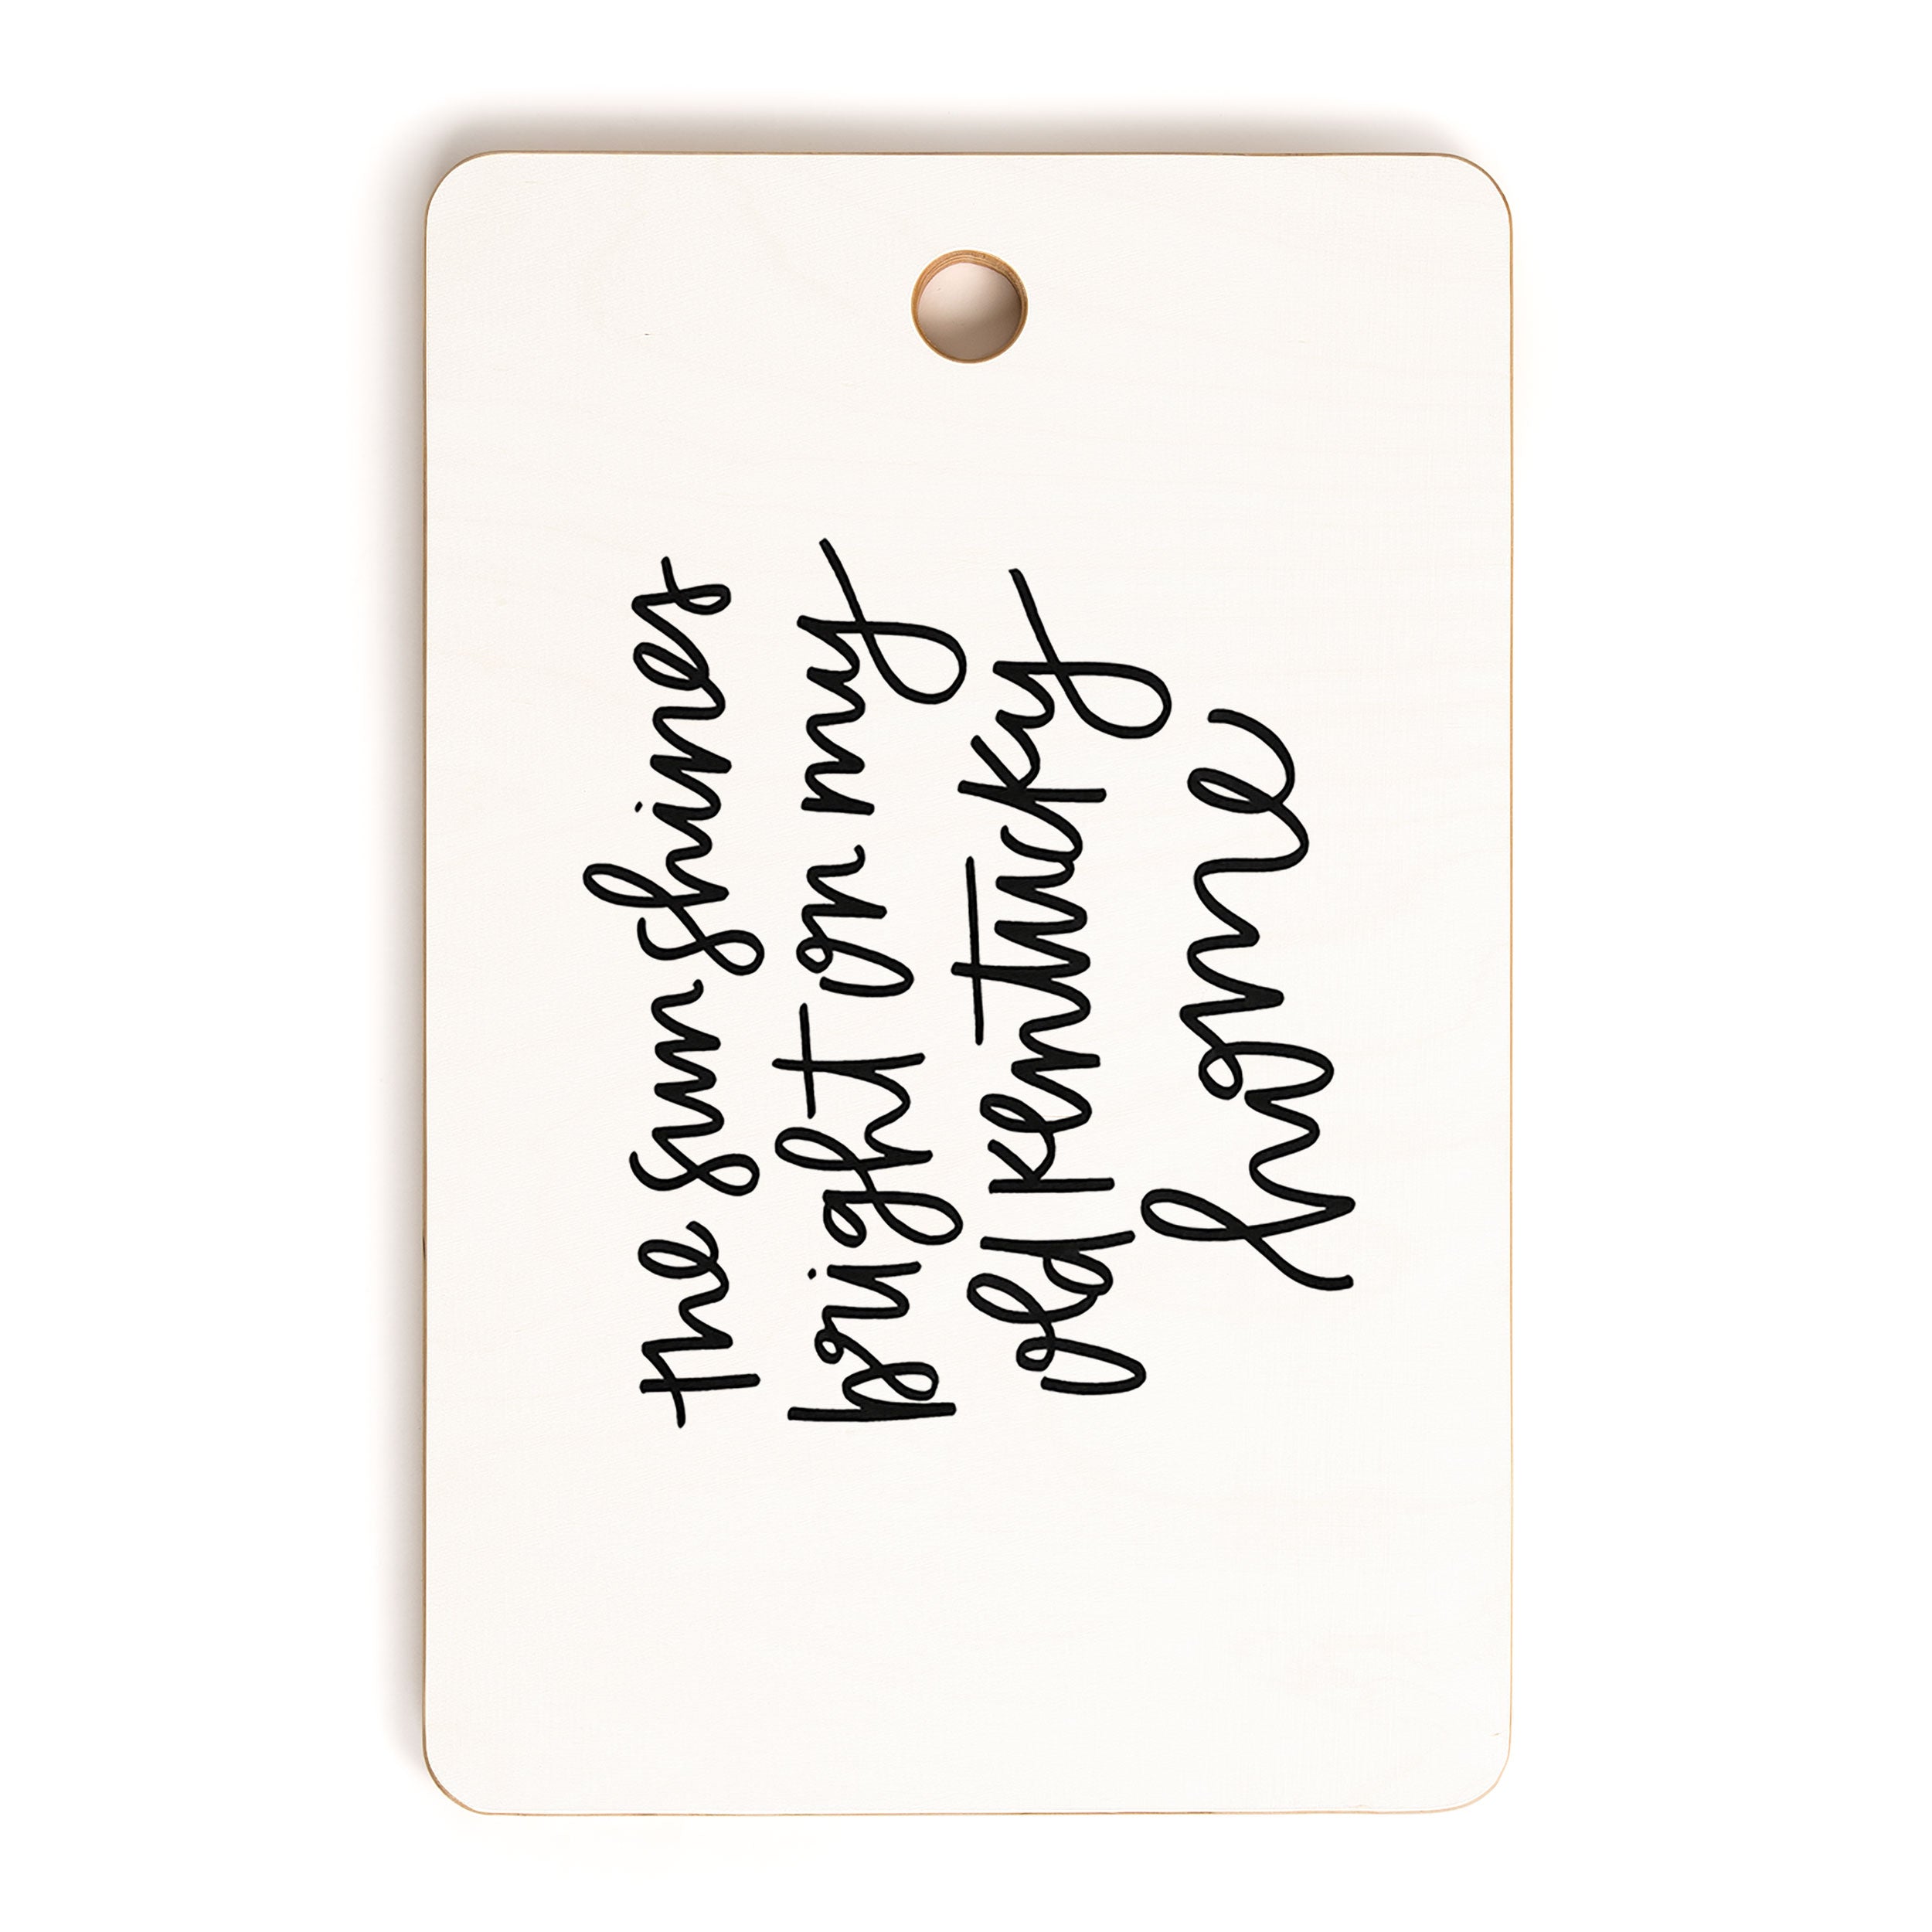 the sun shines
bright on my
old kentucky
home